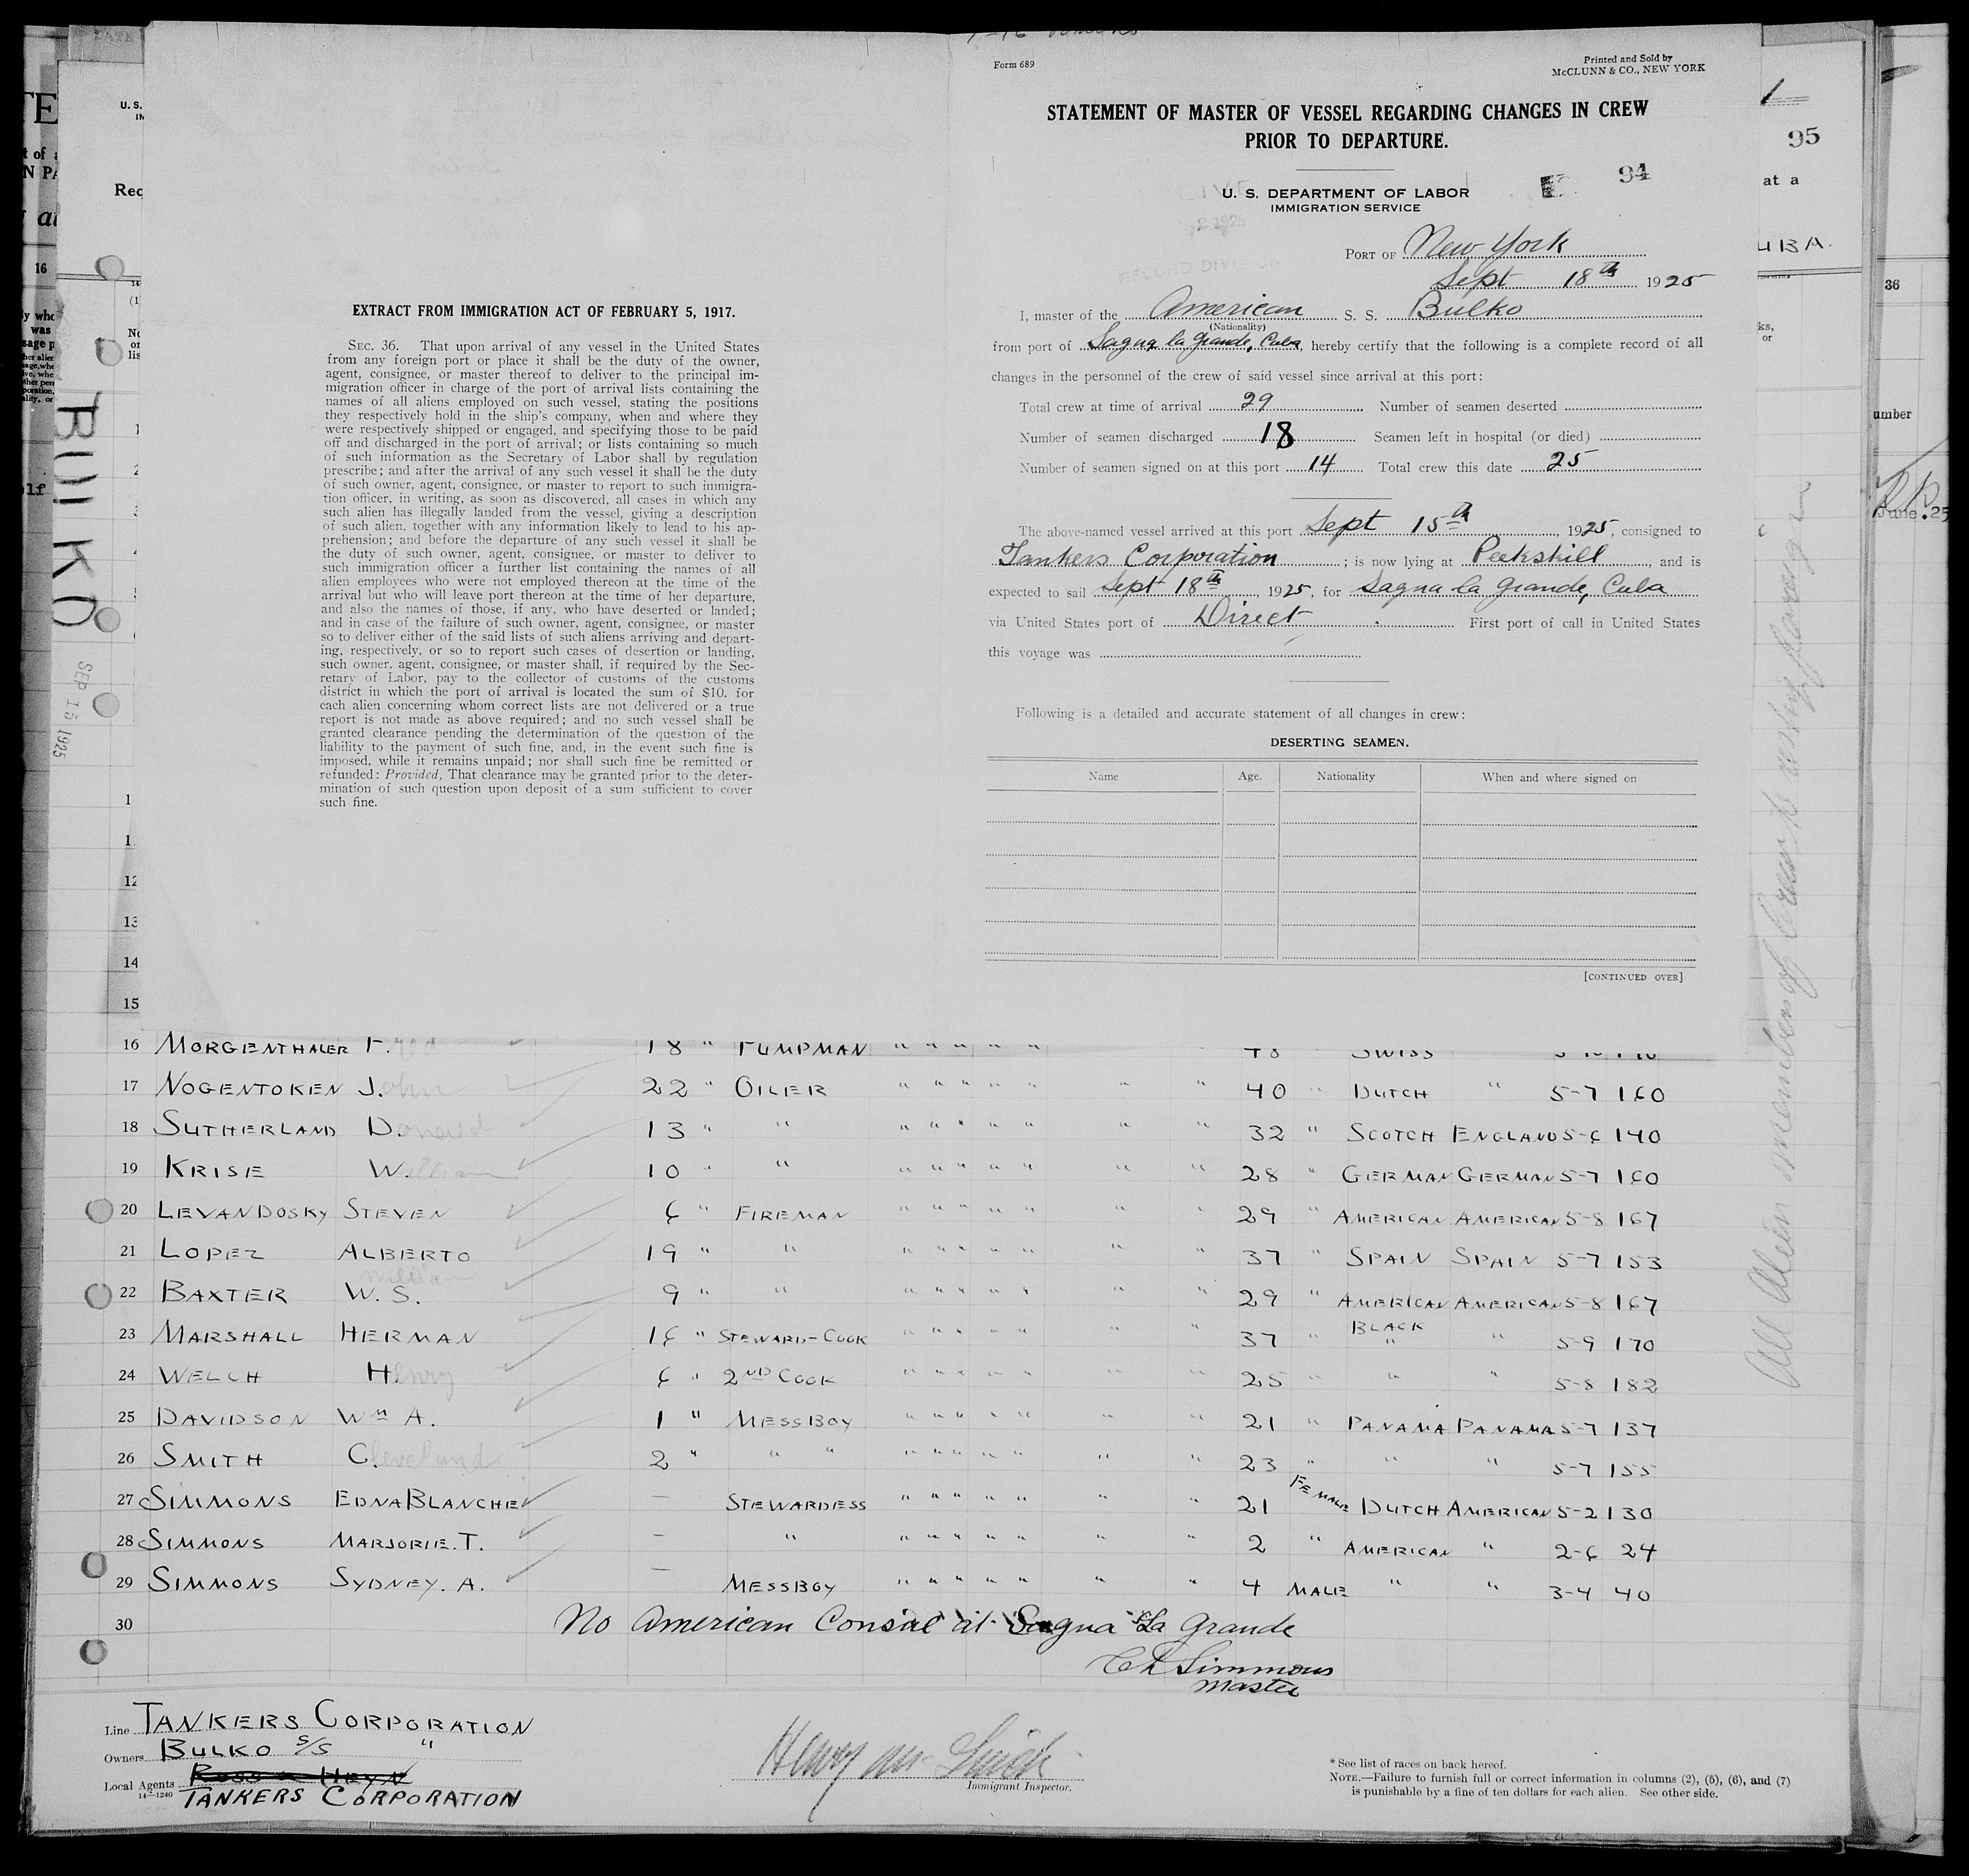 Form 689
Printed and Sold by
McCLUNN & CO., NEW YORK
STATEMENT OF MASTER OF VESSEL REGARDING CHANGES IN CREW
PRIOR TO DEPARTURE.
95
94
U. S. DEPARTMENT OF LABOR
IMMIGRATION SERVICE
PORT OF New York
Sept 18th 1925
I, master of the American S. S. Bulko
(Nationality)
from port of Sagua la Grande, Cuba, hereby certify that the following is a complete record of all
changes in the personnel of the crew of said vessel since arrival at this port:
Total crew at time of arrival 29 Number of seamen deserted
Number of seamen discharged 18 Seamen left in hospital (or died)
Number of seamen signed on at this port 14 Total crew this date 25
The above-named vessel arrived at this port Sept 15th, 1925, consigned to
Tankers Corporation; is now lying at Peekskill, and is
expected to sail Sept 18th, 1925, for Sagua la Grande, Cuba
via United States port of Direct. First port of call in United States
this voyage was
Following is a detailed and accurate statement of all changes in crew:
DESERTING SEAMEN.
Name Age. Nationality When and where signed on
[CONTINUED OVER]
EXTRACT FROM IMMIGRATION ACT OF FEBRUARY 5, 1917.
SEC. 36. That upon arrival of any vessel in the United States
from any foreign port or place it shall be the duty of the owner,
agent, consignee, or master thereof to deliver to the principal im-
migration officer in charge of the port of arrival lists containing the
names of all aliens employed on such vessel, stating the positions
they respectively hold in the ship's company, when and where they
were respectively shipped or engaged, and specifying those to be paid
off and discharged in the port of arrival; or lists containing so much
of such information as the Secretary of Labor shall by regulation
prescribe; and after the arrival of any such vessel it shall be the duty
of such owner, agent, consignee, or master to report to such immigra-
tion officer, in writing, as soon as discovered, all cases in which any
such alien has illegally landed from the vessel, giving a description
of such alien, together with any information likely to lead to his ap-
prehension; and before the departure of any such vessel it shall be
the duty of such owner, agent, consignee, or master to deliver to
such immigration officer a further list containing the names of all
alien employees who were not employed thereon at the time of the
arrival but who will leave port thereon at the time of her departure,
and also the names of those, if any, who have deserted or landed;
and in case of the failure of such owner, agent, consignee, or master
so to deliver either of the said lists of such aliens arriving and depart-
ing, respectively, or so to report such cases of desertion or landing,
such owner, agent, consignee, or master shall, if required by the Sec-
retary of Labor, pay to the collector of customs of the customs
district in which the port of arrival is located the sum of $10. for
each alien concerning whom correct lists are not delivered or a true
report is not made as above required; and no such vessel shall be
granted clearance pending the determination of the question of the
liability to the payment of such fine, and, in the event such fine is
imposed, while it remains unpaid; nor shall such fine be remitted or
refunded: Provided, That clearance may be granted prior to the deter-
mination of such question upon deposit of a sum sufficient to cover
such fine.
BULKO
SEP 15 1925
12
13
14
15
16 MORGENTHALER F. 18 " PUMPMAN " " " " " 48 SWISS
17 NOGENTOKEN John 22 " OILER " " " " " " " 40 " DUTCH " 5-7 160
18 SUTHERLAND Donald 13 " " " " " " " " " 32 " SCOTCH ENGLAND 5-6 140
19 KRISE William 10 " " " " " " " " " 28 " GERMAN GERMAN 5-7 160
20 LEVANDOSKY STEVEN 6 " FIREMAN " " " " " " " 29 " AMERICAN AMERICAN 5-8 167
21 LOPEZ ALBERTO 19 " " " " " " " " " 37 " SPAIN SPAIN 5-7 153
William
22 BAXTER W. S. 9 " " " " " " " " " 29 " AMERICAN AMERICAN 5-8 167
23 MARSHALL HERMAN 16 " STEWARD-COOK " " " " " " " 37 " BLACK " " 5-9 170
24 WELCH Henry 6 " 2ND COOK " " " " " " " 25 " " " 5-8 182
25 DAVIDSON WM A. 1 " MESSBOY " " " " " " " 21 " PANAMA PANAMA 5-7 137
26 SMITH Cleveland 2 " " " " " " " " " " 23 " " " 5-7 155
27 SIMMONS EDNA BLANCHE — STEWARDESS " " " " " " " 21 FEMALE DUTCH AMERICAN 5-2 130
28 SIMMONS MARJORIE. T. — " " " " " " " " 2 " AMERICAN " 2-6 24
29 SIMMONS SYDNEY. A. — MESSBOY " " " " " " " 4 MALE " " 3-4 40
30 No American Consul at Sagua La Grande
C L Simmons
Master
Line TANKERS CORPORATION
Owners BULKO S/S "
Local Agents Ross & Heyn
14-1240 TANKERS CORPORATION
Henry
Immigrant Inspector.
* See list of races on back hereof.
NOTE.—Failure to furnish full or correct information in columns (2), (5), (6), and (7)
is punishable by a fine of ten dollars for each alien. See other side.